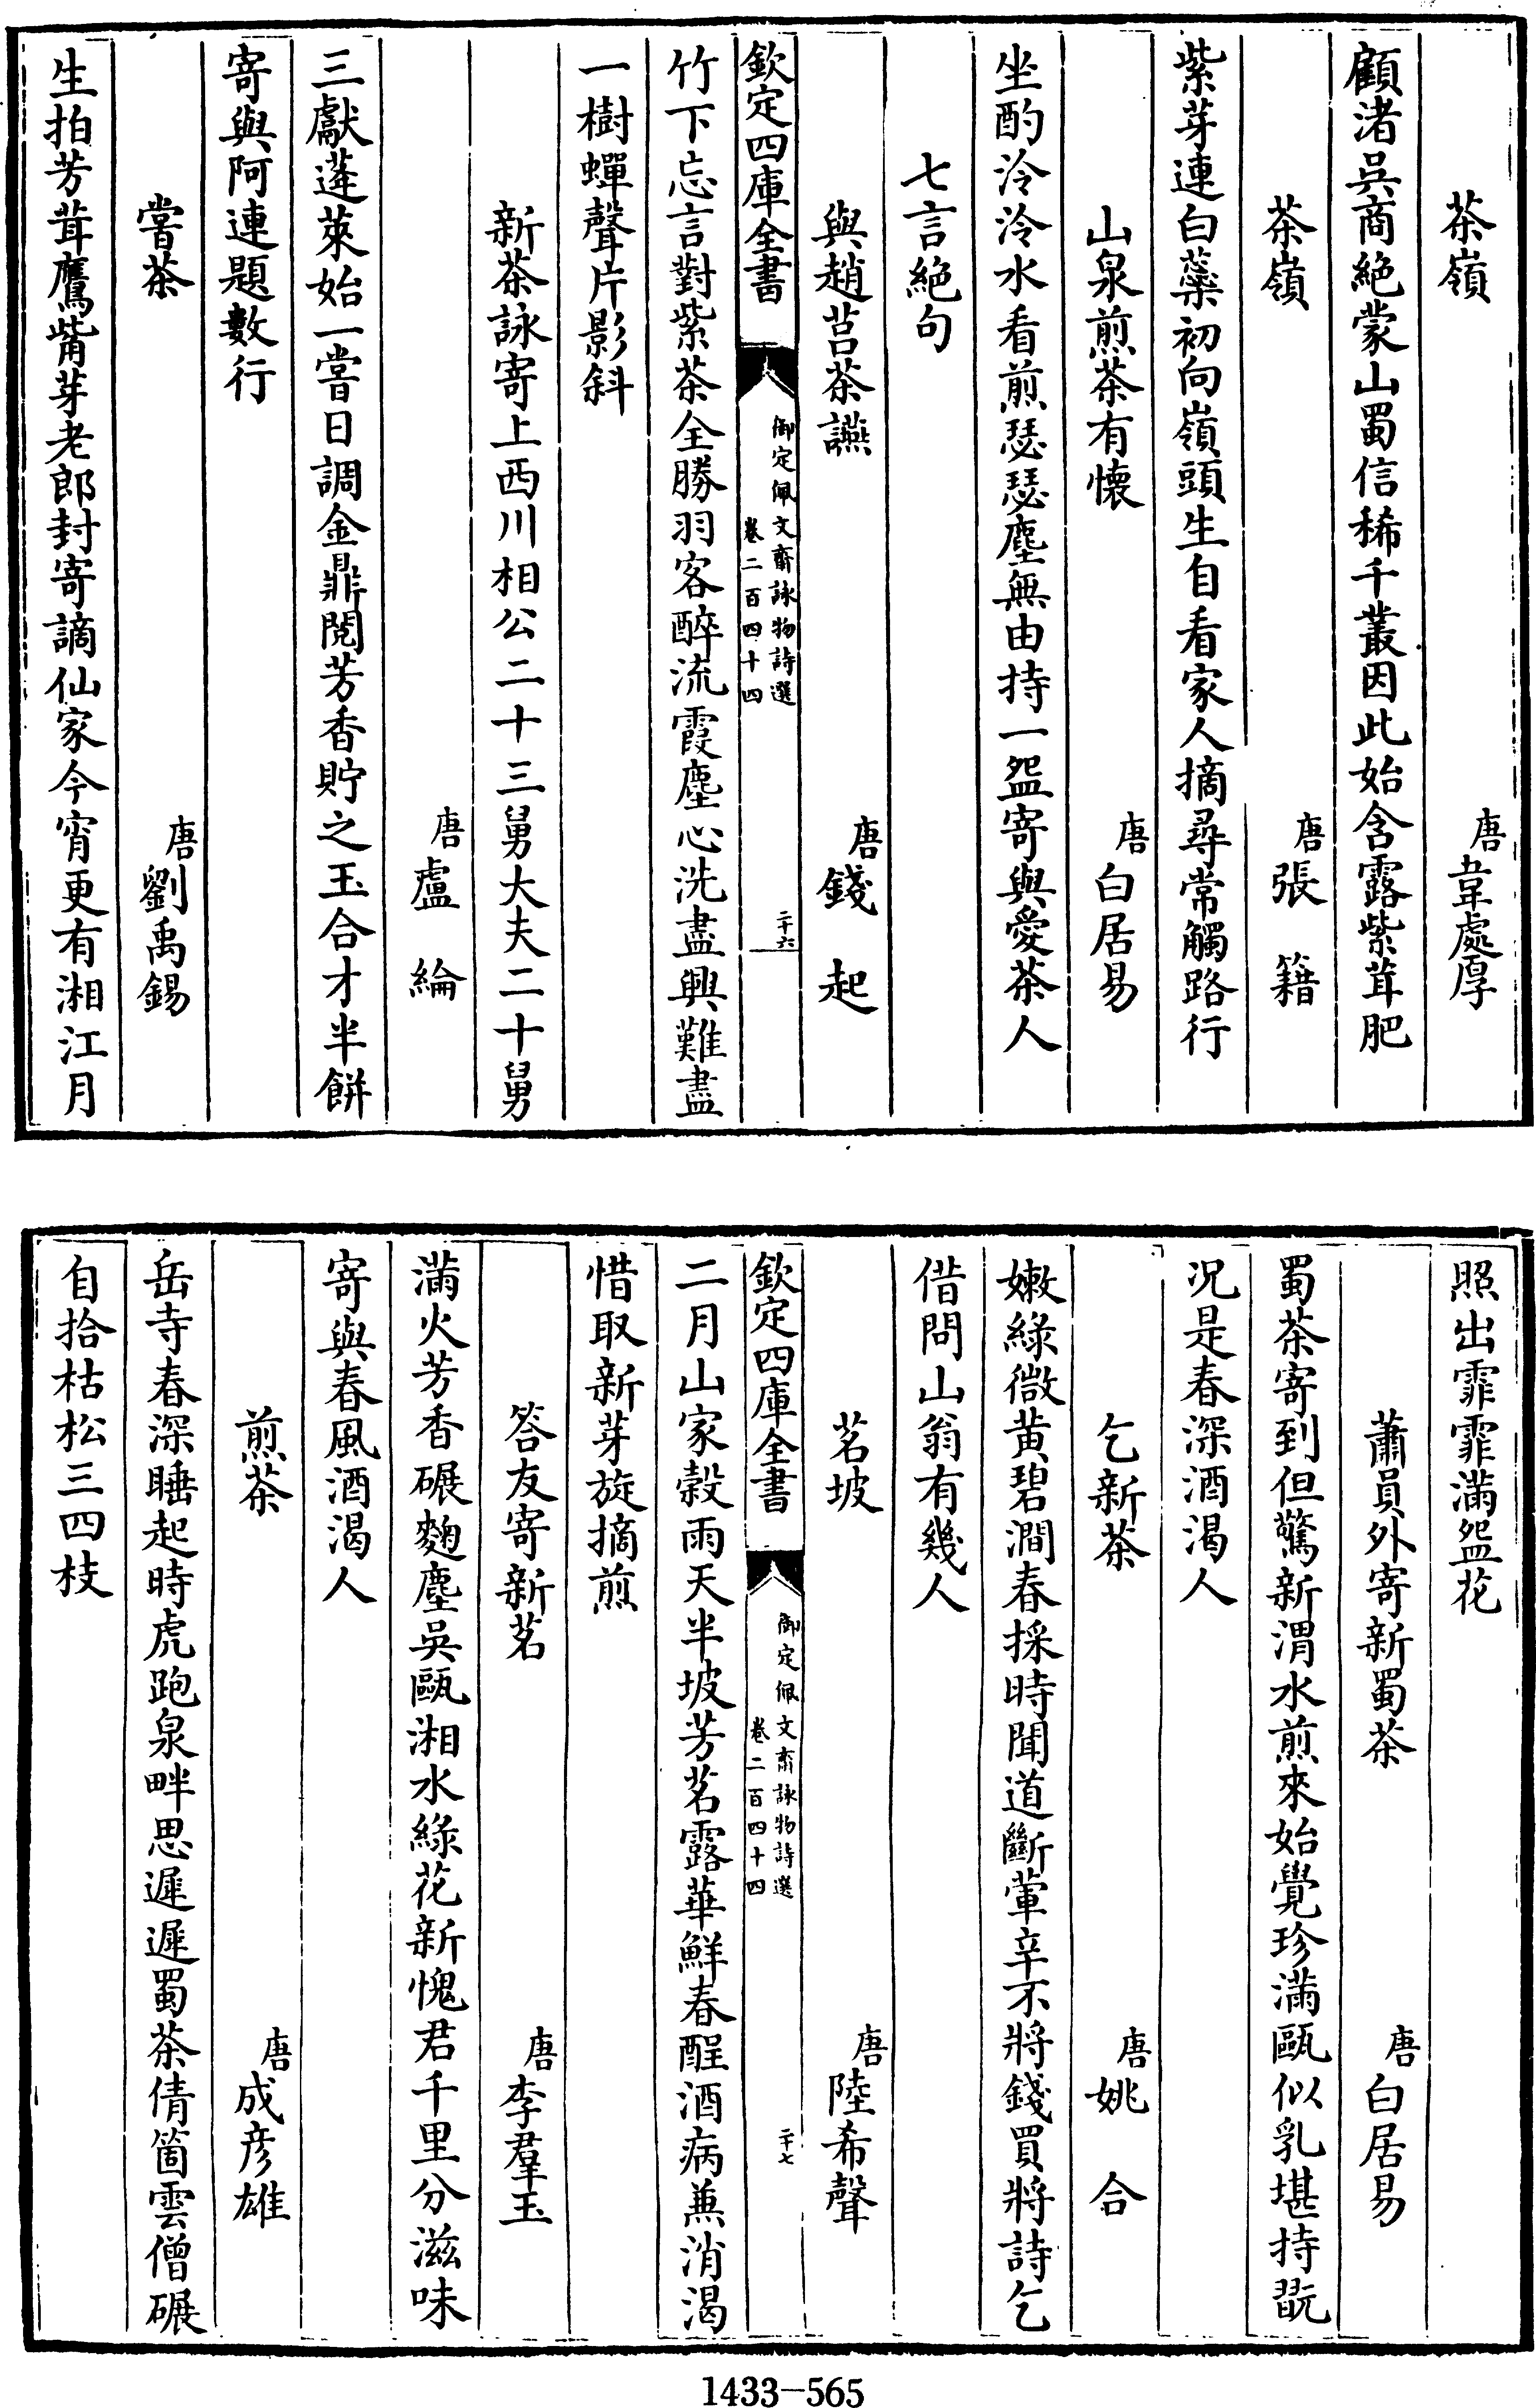 茶嶺
唐韋處厚
顧渚吳商絶蒙山蜀信稀千叢因此始含露紫茸肥
茶嶺
唐張籍
紫芽連白蘂初向嶺頭生自看家人摘尋常觸路行
山泉煎茶有懷
唐白居易
坐酌泠泠水看煎瑟瑟塵無由持一盌寄與愛茶人
七言絶句
與趙莒茶讌
唐錢起
欽定四庫全書
御定佩文齋詠物詩選
卷二百四十四
二十六
竹下忘言對紫茶全勝羽客醉流霞塵心洗盡興難盡
一樹蟬聲片影斜
新茶詠寄上西川相公二十三舅大夫二十舅
唐盧綸
三獻蓬萊始一嘗日調金鼎閱芳香貯之玉合才半餅
寄與阿連題數行
嘗茶
唐劉禹錫
生拍芳茸鷹觜芽老郎封寄謫仙家今宵更有湘江月
照出霏霏滿盌花
蕭員外寄新蜀茶
唐白居易
蜀茶寄到但驚新渭水煎來始覺珍滿甌似乳堪持翫
况是春深酒渴人
乞新茶
唐姚合
嫩綠微黃碧澗春採時聞道斷葷辛不將錢買將詩乞
借問山翁有幾人
茗坡
唐陸希聲
欽定四庫全書
御定佩文齋詠物詩選
卷二百四十四
二十七
二月山家穀雨天半坡芳茗露華鮮春酲酒病兼消渴
惜取新芽旋摘煎
答友寄新茗
唐李羣玉
滿火芳香碾麴塵吳甌湘水綠花新愧君千里分滋味
寄與春風酒渴人
煎茶
唐成彦雄
岳寺春深睡起時虎跑泉畔思遲遲蜀茶倩箇雲僧碾
自拾枯松三四枝
1433-565